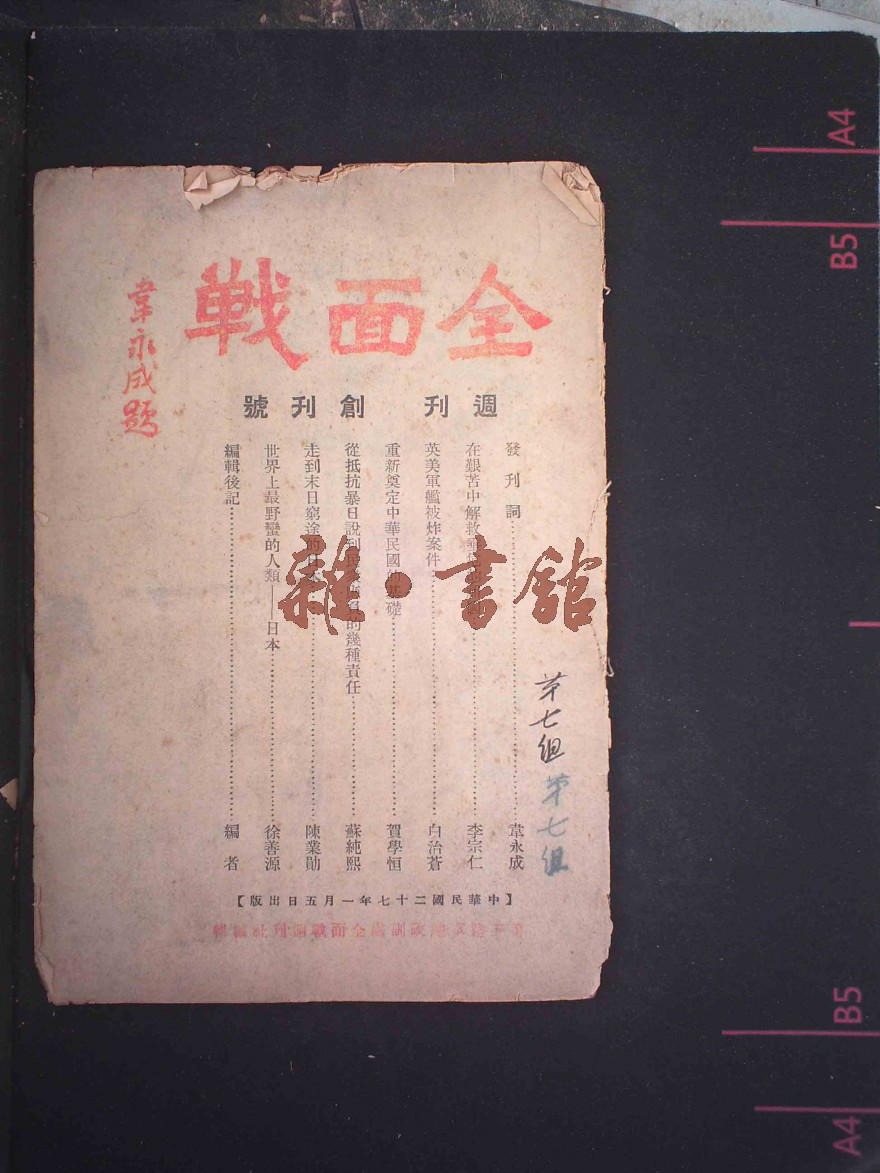 全面戰
韋永成題
週刊 創刊號
發刊詞……韋永成
在艱苦中解救……李宗仁
英美軍艦被炸案件……白治蒼
重新奠定中華民國的基礎……賀學恒
從抵抗暴日說到民衆所負的幾種責任……蘇純熙
走到末日窮途的日本……陳業勛
世界上最野蠻的人類——日本……徐善源
編輯後記……編者
第七組
第七組
【中華民國二十七年一月五日出版】
政訓處全面戰週刊社編輯
雜·書館
A4
B5
B5
A4